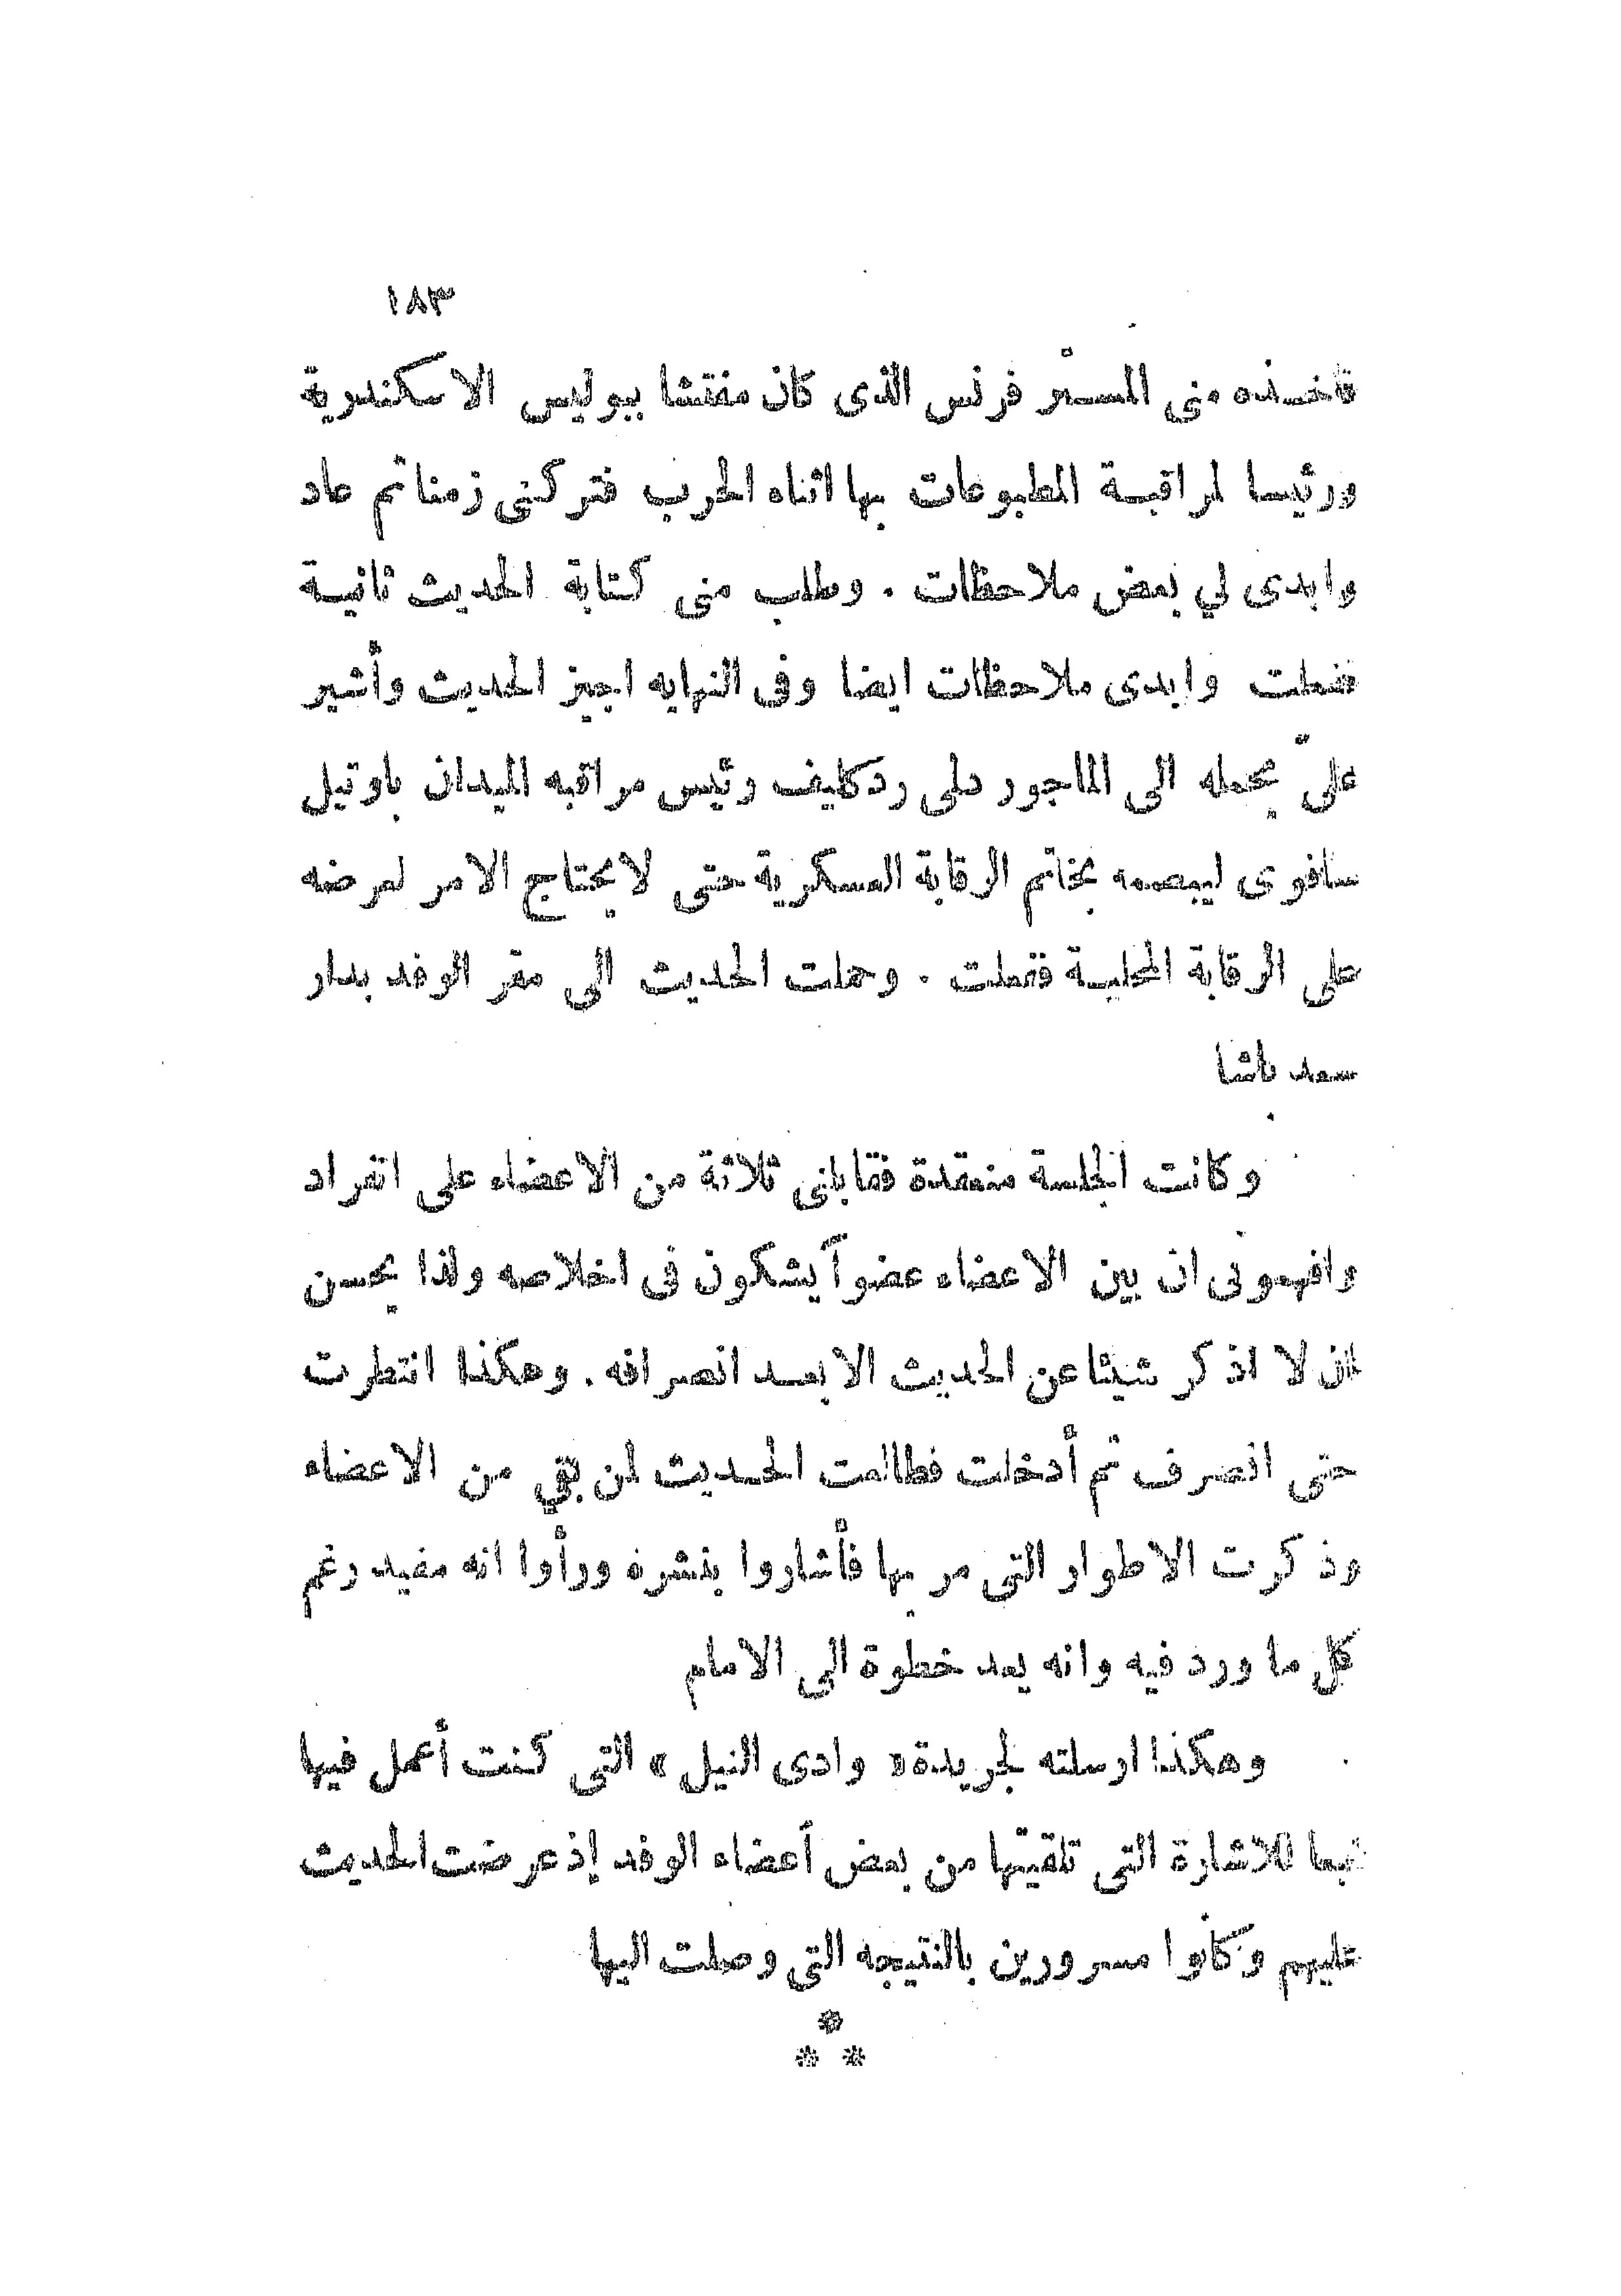 ١٨٣
فأخذه منى المستر فرنس الذى كان مفتشا ببوليس الاسكندرية
ورئيسا لمراقبة المطبوعات بها اثناء الحرب فتركنى زمنا ثم عاد
وابدى لي بعض ملاحظات . وطلب منى كتابة الحديث ثانية
ففعلت وابدى ملاحظات ايضا وفى النهايه اجيز الحديث وأشير
علىّ بحمله الى الماجور دلى ردكليف رئيس مراقبه الميدان باوتيل
سافوى ليبصمه بخاتم الرقابة العسكرية حتى لا يحتاج الامر لعرضه
على الرقابة المحلية ففعلت . وحملت الحديث الى مقر الوفد بدار
سعد باشا
وكانت الجلسة منعقدة فقابلنى ثلاثة من الاعضاء على انفراد
وافهمونى ان بين الاعضاء عضواً يشكون فى اخلاصه ولذا يحسن
ان لا اذكر شيئا عن الحديث الا بعد انصرافه . وهكذا انتظرت
حتى انصرف ثم أدخلت فطالعت الحديث لمن بقي من الاعضاء
وذكرت الاطوار التى مر بها فأشاروا بنشره ورأوا انه مفيد رغم
كل ما ورد فيه وانه يعد خطوة الى الامام
وهكذا ارسلته لجريدة « وادى النيل » التى كنت أعمل فيها
تبعا للاشارة التى تلقيتها من بعض أعضاء الوفد إذ عرضت الحديث
عليهم وكانوا مسرورين بالنتيجه التى وصلت اليها
*
* *